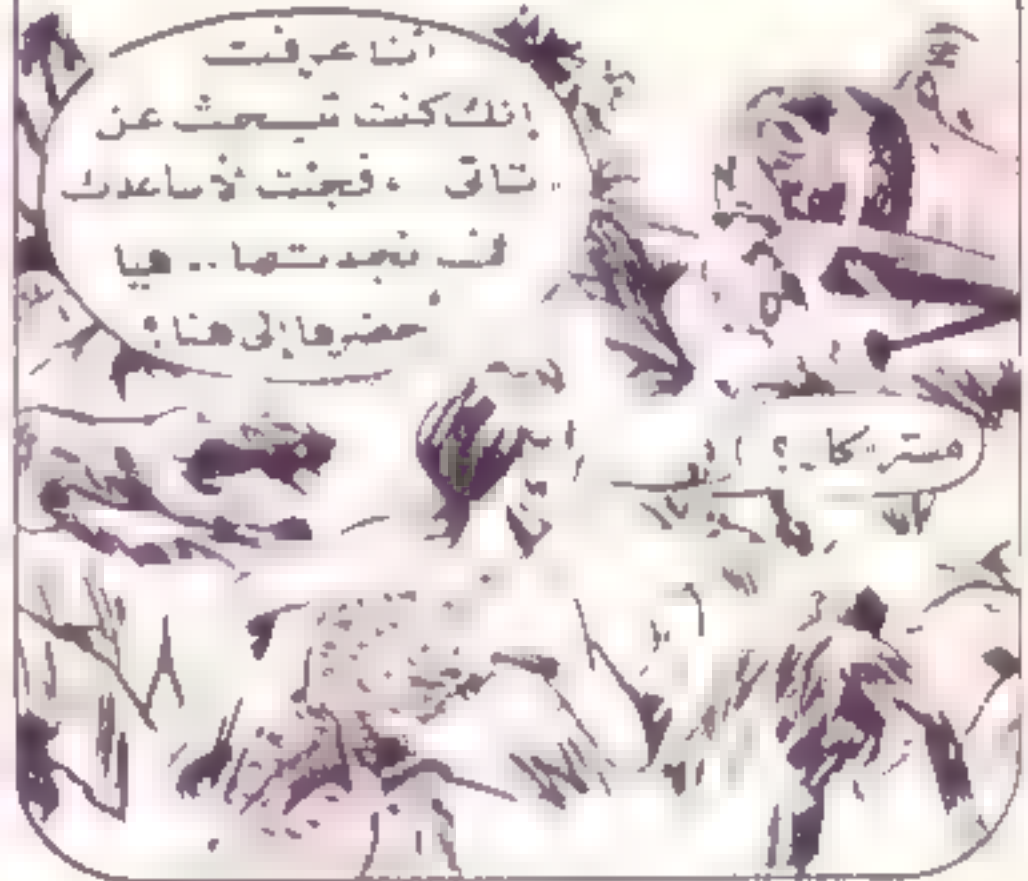 أنا عرفت
إنك كنت تبحث عن
تاق ، فجئت لأساعدك
فى نجدتها .. هيا
حضرها إلى هنا !
مستر كا .. ؟ !